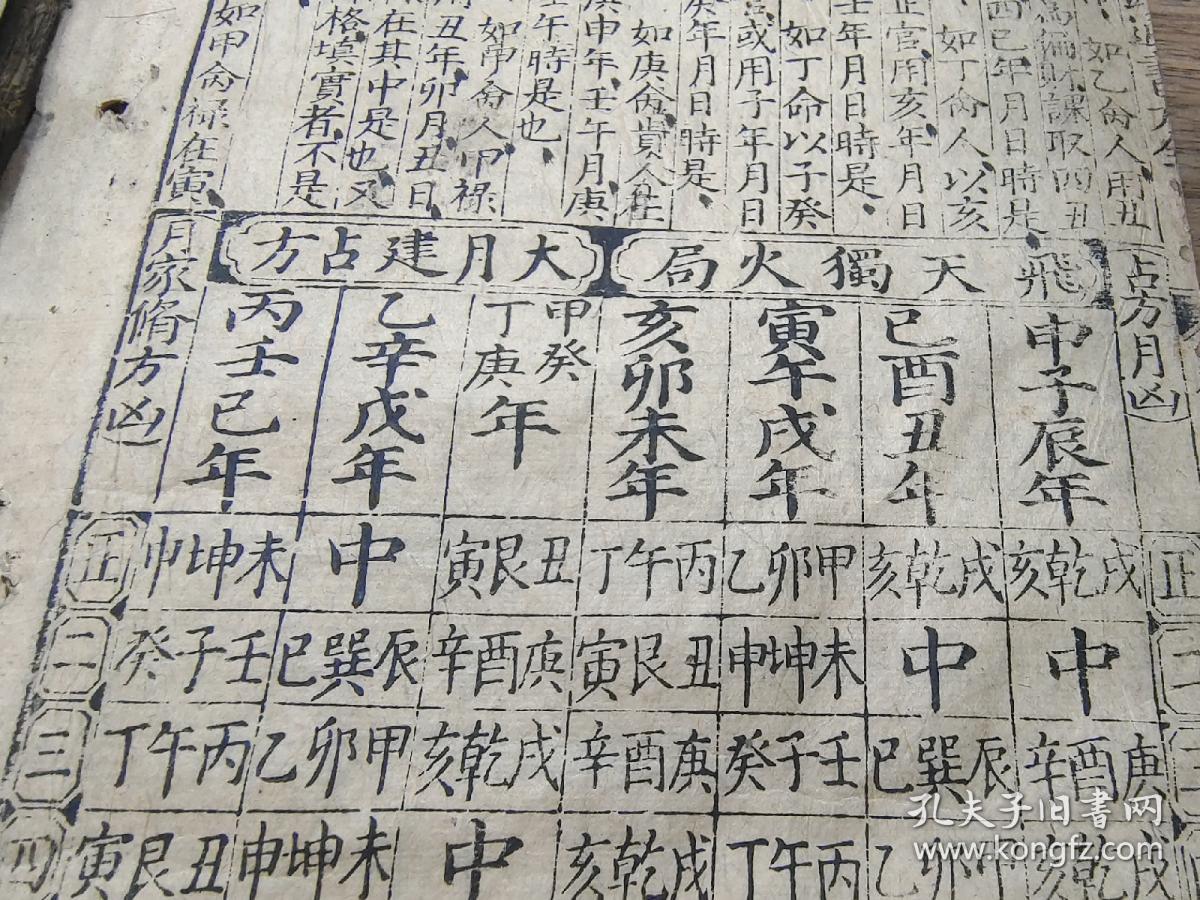 人用丑
如乙命人
為偏財課取四丑
四巳年月日時是
如丁命人以亥
正官用亥年月日
壬年月日時是
如丁命以子癸
或用子年月日
癸年月日時是
如庚命貴人在
庚申年壬午月庚
壬午時是也
如甲命人甲祿
用丑年卯月丑日
在其中是也又
格填實者不是
如甲命祿在寅
占方月凶
飛天獨火局
大月建占方
月家脩方凶
申子辰年
巳酉丑年
寅午戌年
亥卯未年
甲癸丁庚年
乙辛戊年
丙壬己年
正 戌乾亥 戌乾亥 甲卯乙 丙午丁 丑艮寅 中 未坤申 正
二 中 中 未坤申 丑艮寅 庚酉辛 辰巽巳 壬子癸 二
三 庚酉辛 辰巽巳 壬子癸 庚酉辛 戌乾亥 甲卯乙 丙午丁 三
戌乾亥 甲卯乙 丙午丁 戌乾亥 中 未坤申 丑艮寅 四
孔夫子旧书网
www.kongfz.com